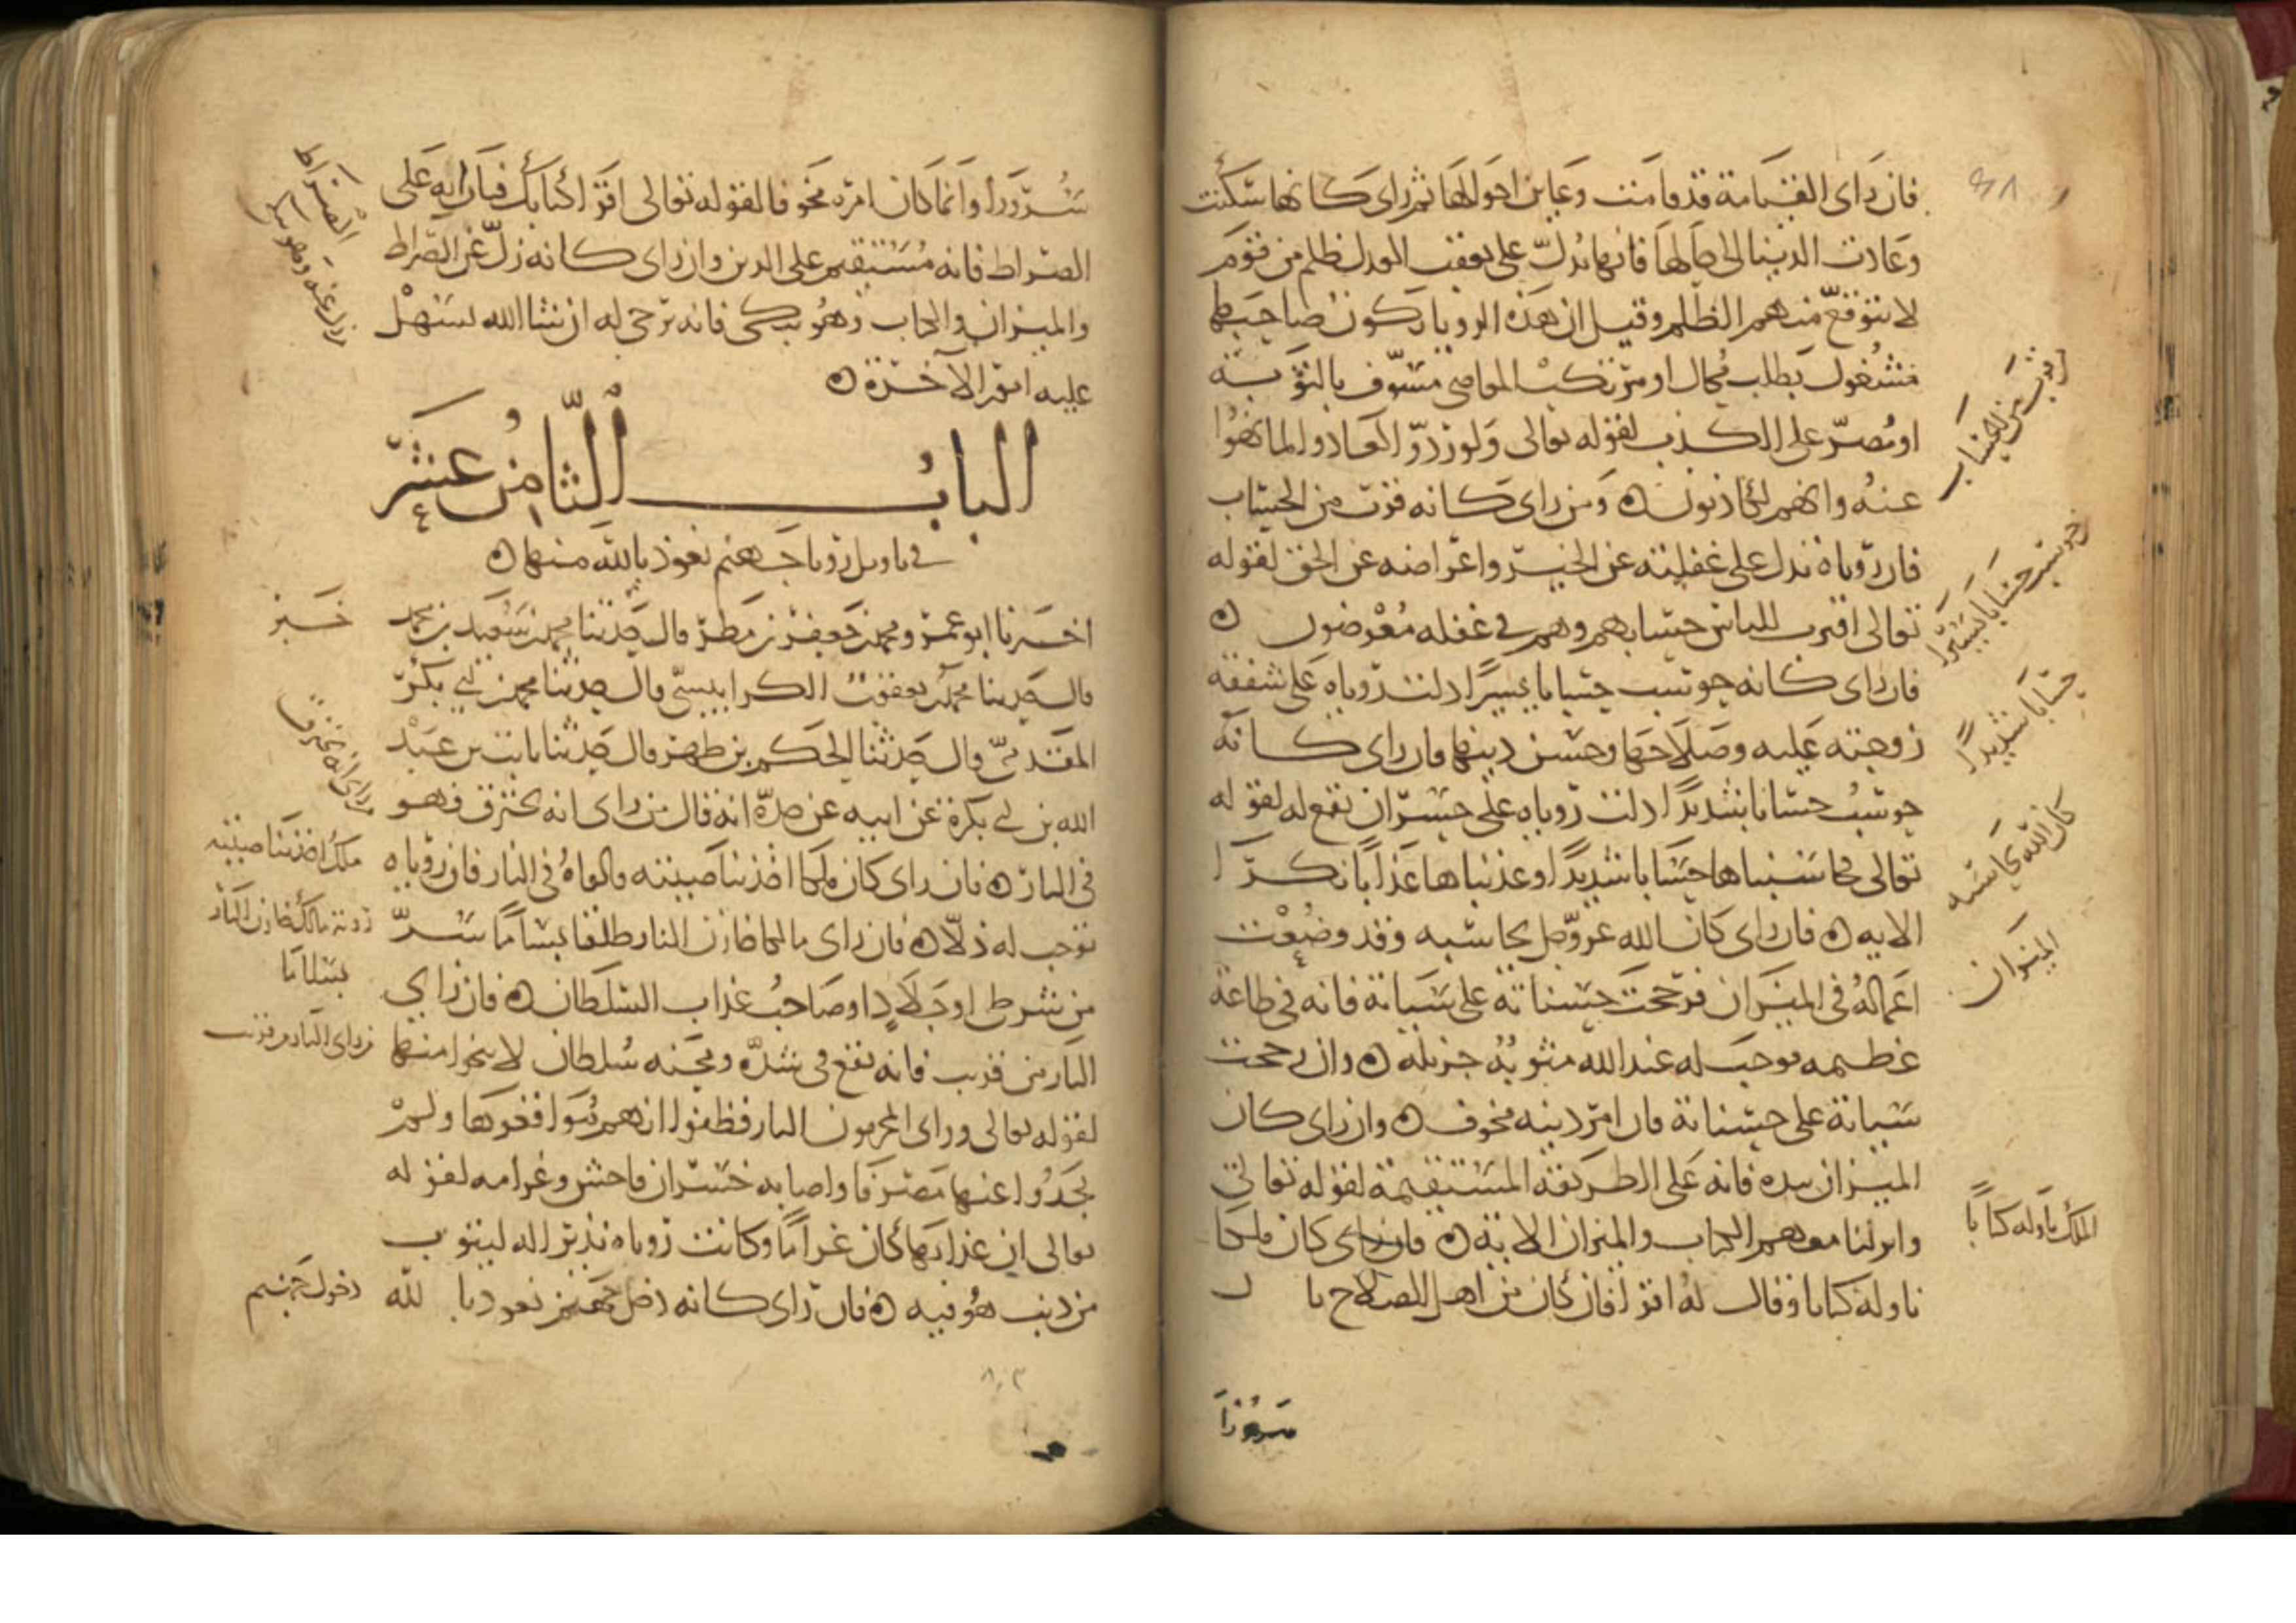 فان راى القيامة قد قامت وعاين احوالها ثم راى كانها سكنت
وعادت الدنيا الى حالها فانها تدل على تعقب العدل لظلم من قوم
لا يتوقع منهم الظلم وقيل ان هذه الرويا يكون صاحبها
مشغول بطلب محال او مرتكب المعاصى مسوف بالتوبة
او مصر على الكذب لقوله تعالى ولو ردوا لعادوا لما نهوا
عنه وانهم لكاذبون ه ومن راى كانه قرب من الحساب
فان روياه تدل على غفلته عن الخير واعراضه عن الحق لقوله
تعالى اقترب للناس حسابهم وهم فى غفلة معرضون ه
فان راى كانه حوسب حسابا يسيرا دلت روياه على شفقة
زوجته عليه وصلاحها وحسن دينها فان راى كانه
حوسب حسابا شديدا دلت روياه على خسران تقع له لقوله
تعالى فحاسبناها حسابا شديدا وعذبناها عذابا نكرا
الايه ه فان راى كان الله عز وجل يحاسبه وقد وضعت
اعماله فى الميزان فرجحت حسناته على سياته فانه فى طاعة
عظيمه توجب له عند الله مثوبة جزيله ه وان رجحت
سياته على حسناته فان امر دينه مخوف ه وان راى كان
الميزان بيده فانه على الطريقة المستقيمة لقوله تعالى
وانزلنا معهم الكتاب والميزان الاية ه فان راى كان ملكا
ناوله كتابا وقال له اقرا فان كان من اهل الصلاح نال
قرب من الحساب
حوسب حسابا يسيرا
حسابا شديدا
كان الله يحاسبه
الميزان
الملك ناوله كتابا
سرورا
سرورا وانما كان امره مخوفا لقوله تعالى اقرا كتابك فان رايه على
الصراط فانه مستقيم على الدين وان راى كانه زل عن الصراط
والميزان والكتاب وهو يبكى فانه يرجى له ان شا الله تسهل
عليه امور الآخرة ه
الباب الثامن عشر
فى تاويل رويا جهنم نعوذ بالله منها ه
اخبرنا ابو عمرو محمد بن جعفر بن مطر قال حدثنا محمد بن سعيد بن محمد
قال حدثنا محمد بن يعقوب الكرابيسى قال حدثنا محمد بن ابى بكر
المقدمى قال حدثنا الحكم بن ظهير قال حدثنا ثابت بن عبد
الله بن ابى بكرة عن ابيه عن جده انه قال من راى انه يحترق فهو
فى النار ه فان راى كان ملكا اخذ بناصيته والقاه فى النار فان روياه
توجب له ذلا ه فان راى مالكا خازن النار طلقا بساما سر
من شرطى او جلاد او صاحب عذاب السلطان ه فان راى
النار من قريب فانه يقع فى شدة ومحنه سلطان لا ينجو منها
لقوله تعالى وراى المجرمون النار فظنوا انهم مواقعوها ولم
يجدوا عنها مصرفا واصابه خسران فاحش وغرامه لقوله
تعالى ان عذابها كان غراما وكانت روياه نذيرا له ليتوب
من ذنب هو فيه ه فان راى كانه دخل جهنم نعوذ بالله
الصراط
خبر
راى انه يحترق
ملك اخذ بناصيته
رويه مالك خازن النار
بساما
راى النار من قريب
دخول جهنم